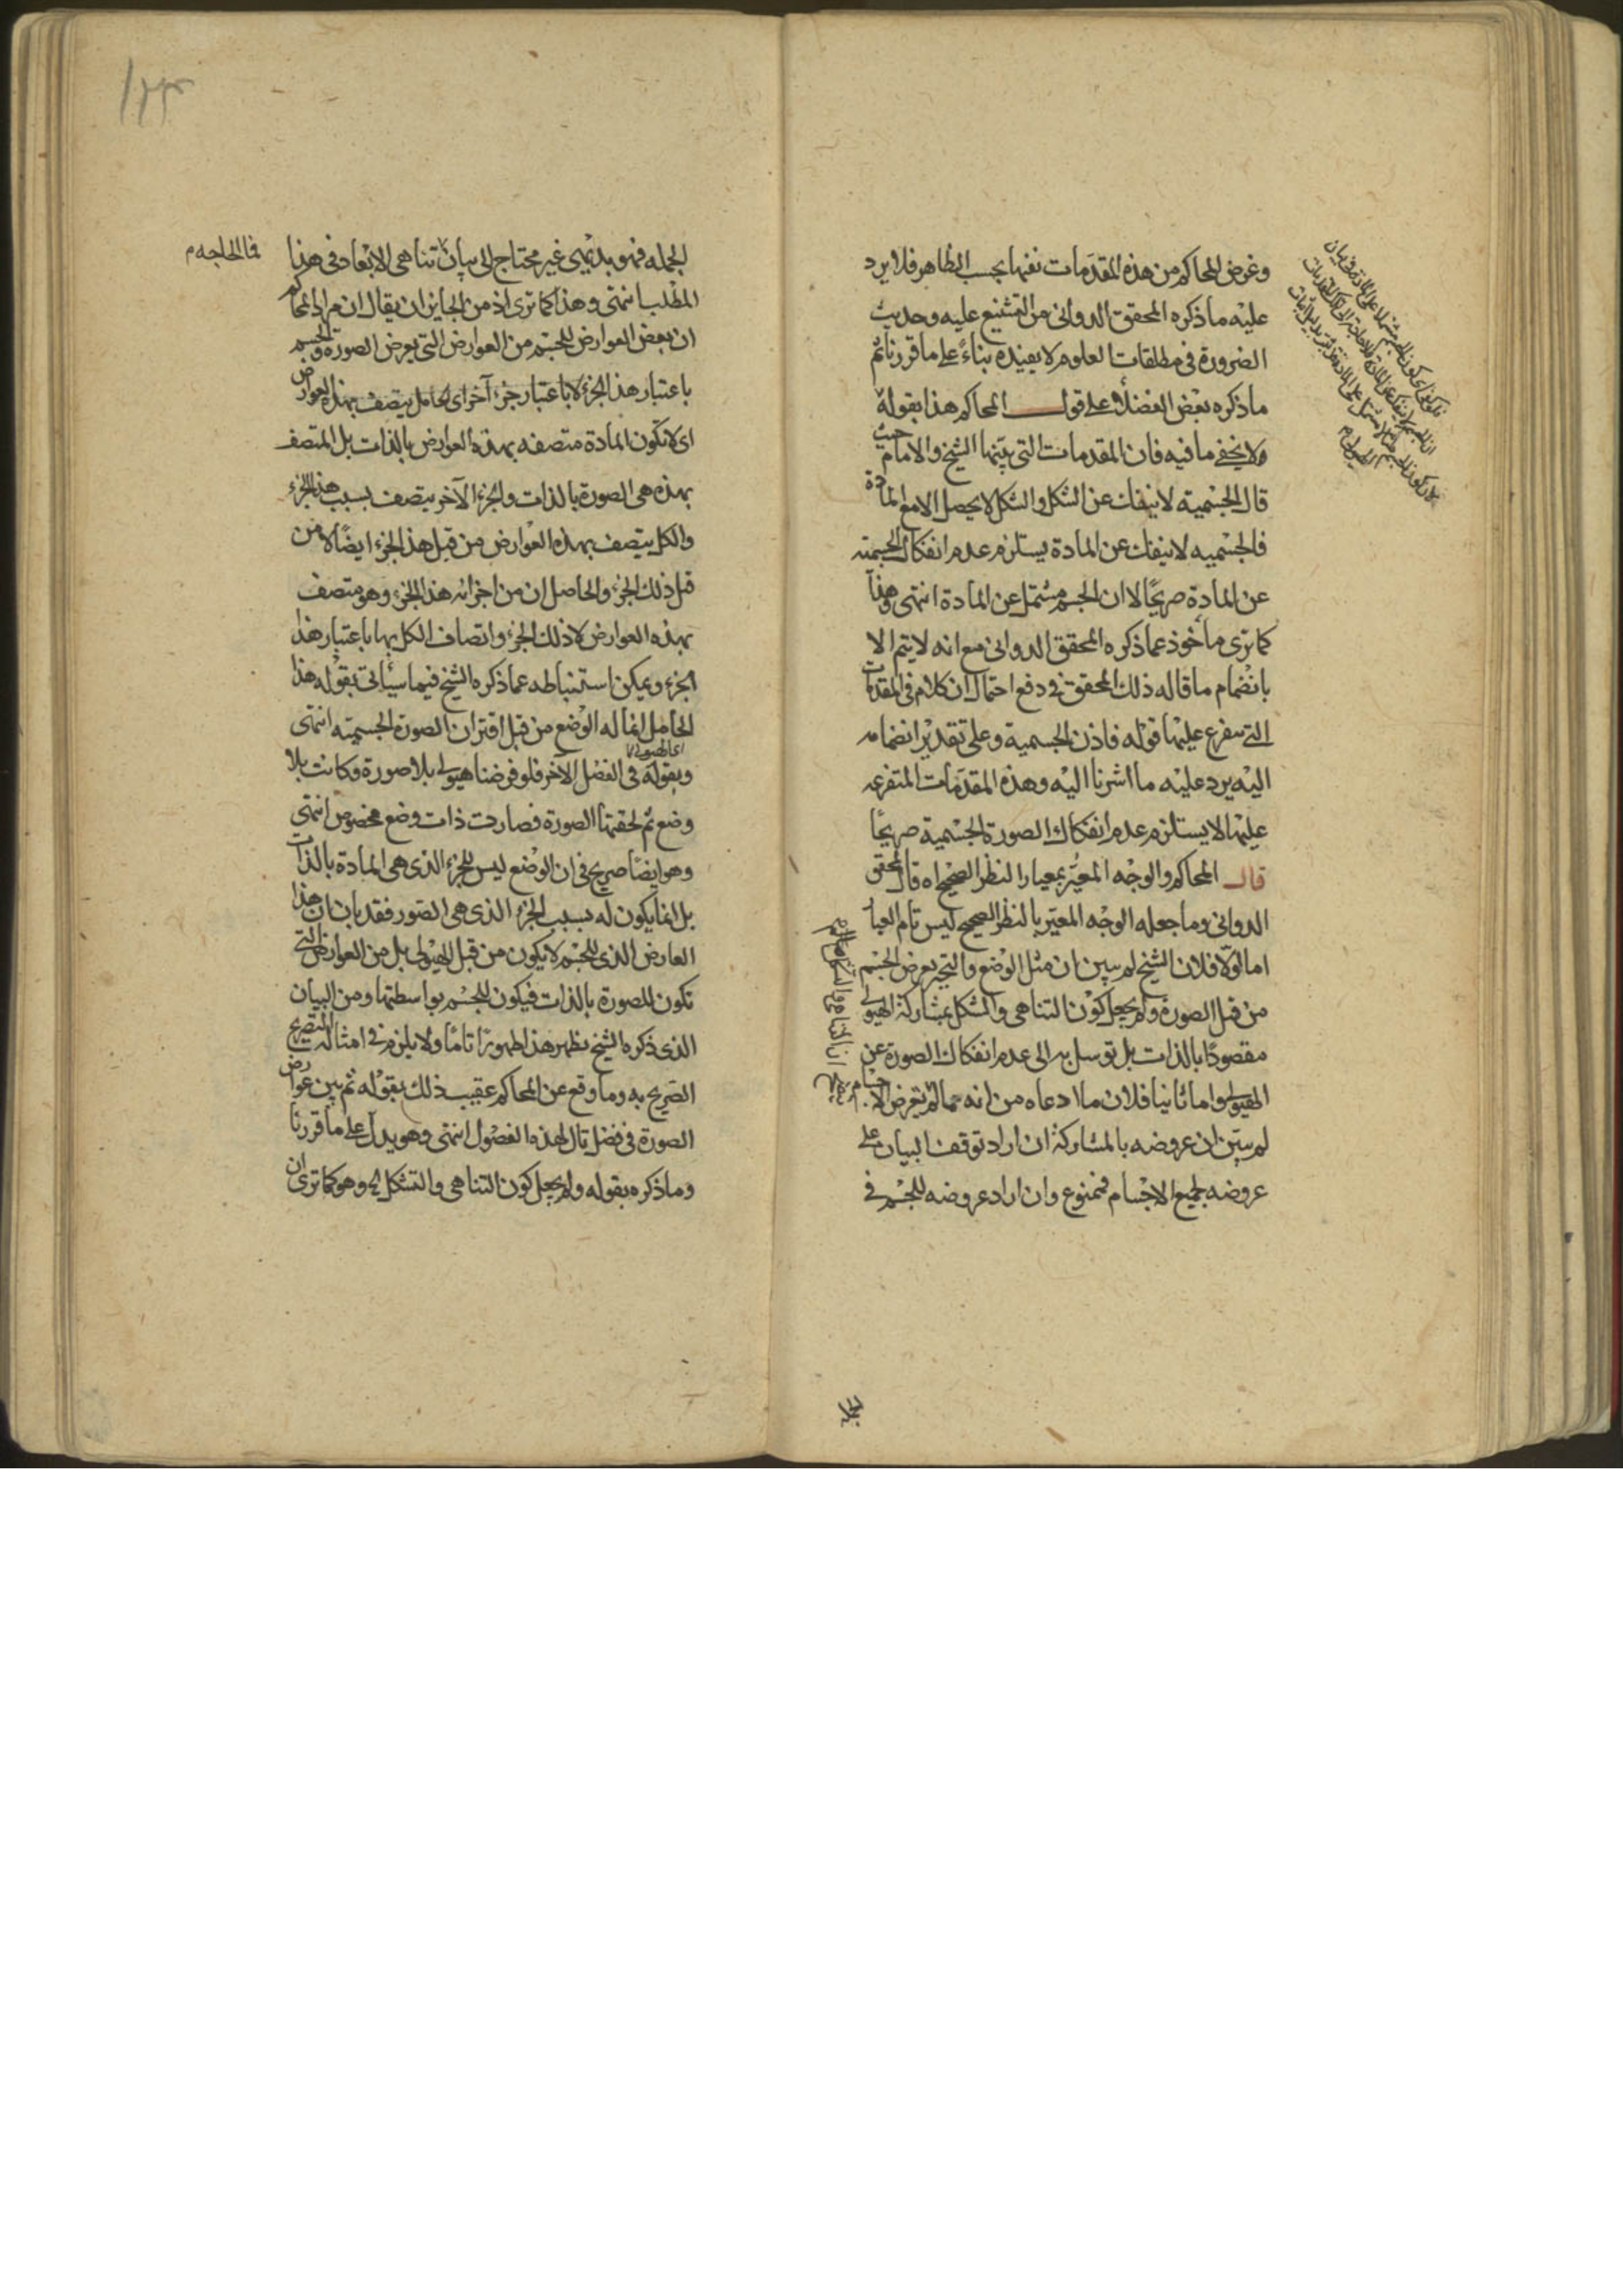 وغرض المحاكم من هذه المقدمات نفيها بحسب الظاهر فلا يرد
عليه ما ذكره المحقق الدواني من التشنيع عليه وحديث
الضرورة في مطلقات العلوم لا يفيده بناءً على ما قررنا ثم
ما ذكره بعض الفضلاء على قول المحاكم هذا بقوله
ولا يخفى ما فيه فان المقدمات التي بينها الشيخ والامام حيث
قال الجسمية لا ينفك عن الشكل والشكل لا يحصل الا مع المادة
فالجسميه لا ينفك عن المادة يستلزم عدم انفكاك الجسميه
عن المادة صريحًا لا ان الجسم مشتمل عن المادة انتهى وهذا
كما ترى مأخوذ عما ذكره المحقق الدواني مع انه لا يتم الا
بانضمام ما قاله ذلك المحقق في دفع احتمال ان كلام في المقدمات
التي يتفرع عليها قوله فاذن الجسمية وعلى تقدير انضمامه
اليه يرد عليه ما اشرنا اليه وهذه المقدمات المتفرعه
عليها لا يستلزم عدم انفكاك الصورة الجسمية صريحًا
قال المحاكم والوجه المعيّر بمعيار النظر الصحيح اه قال المحقق
الدواني وما جعله الوجه المعيّر بالنظر الصحيح ليس تام العيار
اما اولًا فلان الشيخ لم يبين ان مثل الوضع والتحيز يعرض الجسم
من قبل الصورة ولم يجعل كون التناهي والشكل بمشاركة الهيولى
مقصودًا بالذات بل توسل به الى عدم انفكاك الصورة عن
الهيولى واما ثانيا فلان ما ادعاه من انه مما لم يعرض الاجسام
لم يبين ان عروضه بالمشاركة ان اراد توقف البيان على
عروضه لجميع الاجسام فممنوع وان اراد عروضه للجسم في
الجمله فهو بديهي غير محتاج الى بيان تناهي الابعاد في هذا
فما الحاجه م
المطلب انتهى وهذا كما ترى اذ من الجايز ان يقال ان مراد المحاكم
ان بعض العوارض للجسم من العوارض التي يعرض الصورة والجسم
باعتبار هذا الجزء لا باعتبار جزء آخر اي الحامل يتصف بهذه العوارض
اي لا تكون المادة متصفه بهذه العوارض بالذات بل المتصف
بهذه هي الصورة بالذات والجزء الآخر يتصف بسبب هذا الجزء
والكل يتصف بهذه العوارض من قبل هذا الجزء ايضًا لا من
قبل ذلك الجزء والحاصل ان من اجزائه هذا الجزء وهو متصف
بهذه العوارض لا ذلك الجزء واتصاف الكل بها باعتبار هذا
الجزء ويمكن استنباطه عما ذكره الشيخ فيما سيأتي بقوله هذا
الحامل انما له الوضع من قبل اقتران الصورة الجسميته انتهى
وبقوله في الفصل الآخر فلو فرضنا هيولى بلا صورة وكانت بلا
وضع ثم لحقتها الصورة فصارت ذات وضع مخصوص انتهى
وهو ايضًا صريح في ان الوضع ليس للجزء الذي هي المادة بالذات
بل انما يكون له بسبب الجزء الذي هي الصور فقد بان ان هذا
العارض الذي للجسم لا يكون من قبل الهيولى بل من العوارض التي
تكون للصورة بالذات فيكون للجسم بواسطتها ومن البيان
الذي ذكره الشيخ يظهر هذا ظهورًا تامًا ولا يلزم في امثاله التصريح
الصريح به وما وقع عن المحاكم عقيب ذلك بقوله ثم يبين عوارض
الصورة في فصل تال لهذه الفصول انتهى وهو يدل على ما قررنا
وما ذكره بقوله ولم يجعل كون التناهي والتشكل اه وهو كما ترى ان